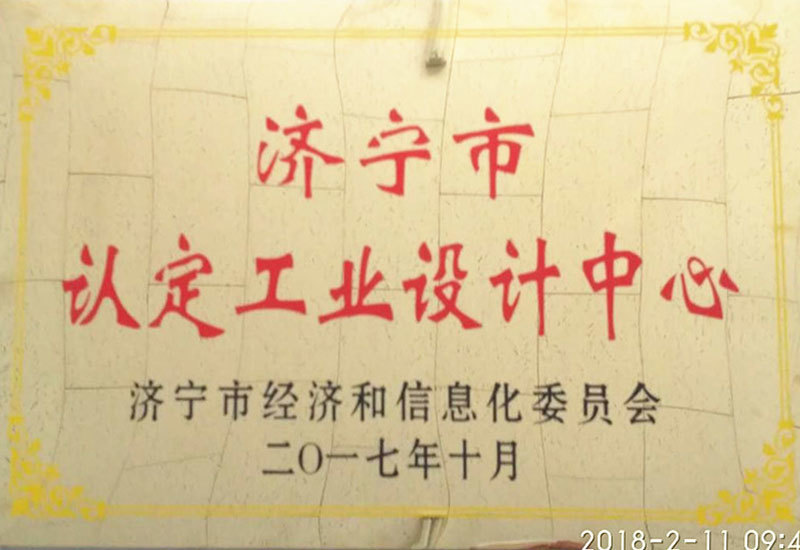 济宁市
认定工业设计中心
济宁市经济和信息化委员会
二〇一七年十月
2018-2-11 09:4